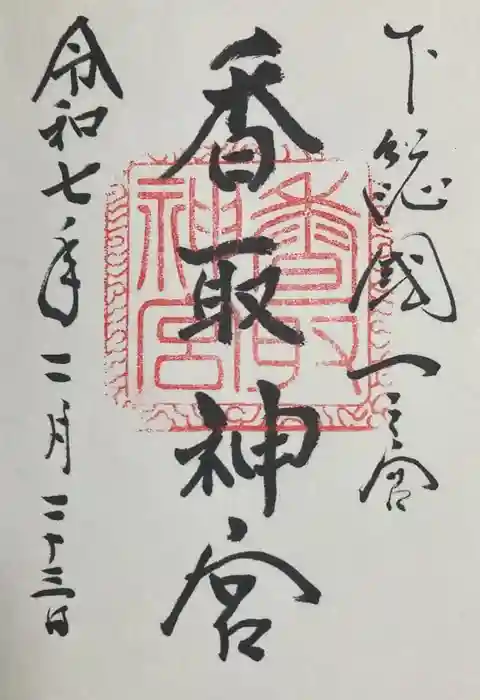 下総國一之宮
香取神宮
香取神宮
令和七年二月二十三日